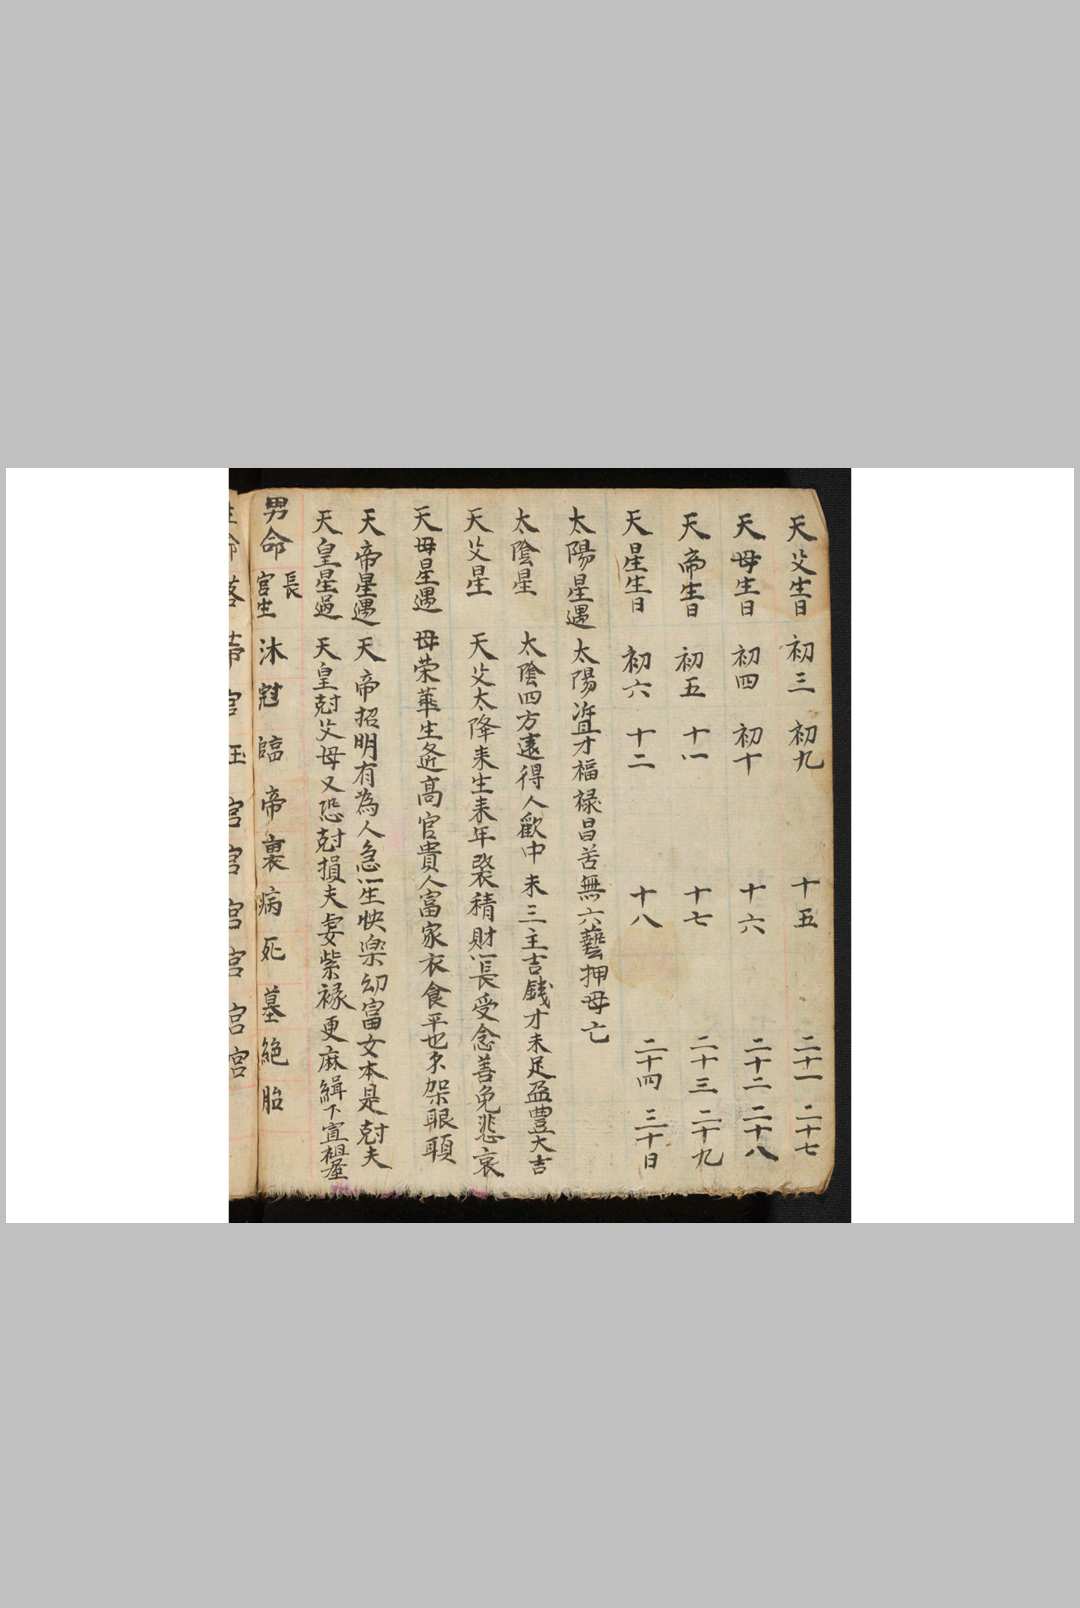 天父生日 初三 初九 十五 二十一 二十七
天母生日 初四 初十 十六 二十二 二十八
天帝生日 初五 十一 十七 二十三 二十九
天星生日 初六 十二 十八 二十四 三十日
太陽星遇 太陽 才福禄昌苦無六藝押母亡
太陰星 太陰四方遠得人歡中未三主吉銭才未足盈豊大吉
天父星 天父太降来生来年 積財 長受念善免悲哀
天母星遇 母荣華生 高官貴人富家衣食平也 架眼頭
天帝星遇 天帝招明有為人急 生快楽幼富女本是尅夫
天皇星過 天皇尅父母又恐尅損夫妻紫禄更麻緝下宜祖屋
男命 長生宮 沐 冠 臨 帝 裏 病 死 墓 絶 胎